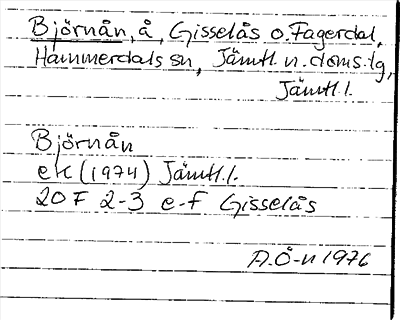 Björnån, å, Gisselås o. Fagerdal,
Hammerdals sn, Jämtl. n. doms.lg,
Jämtl. l.
Björnån
ek (1974) Jämtl. l.
20 F 2-3 e-f Gisselås
A.Ö-n 1976